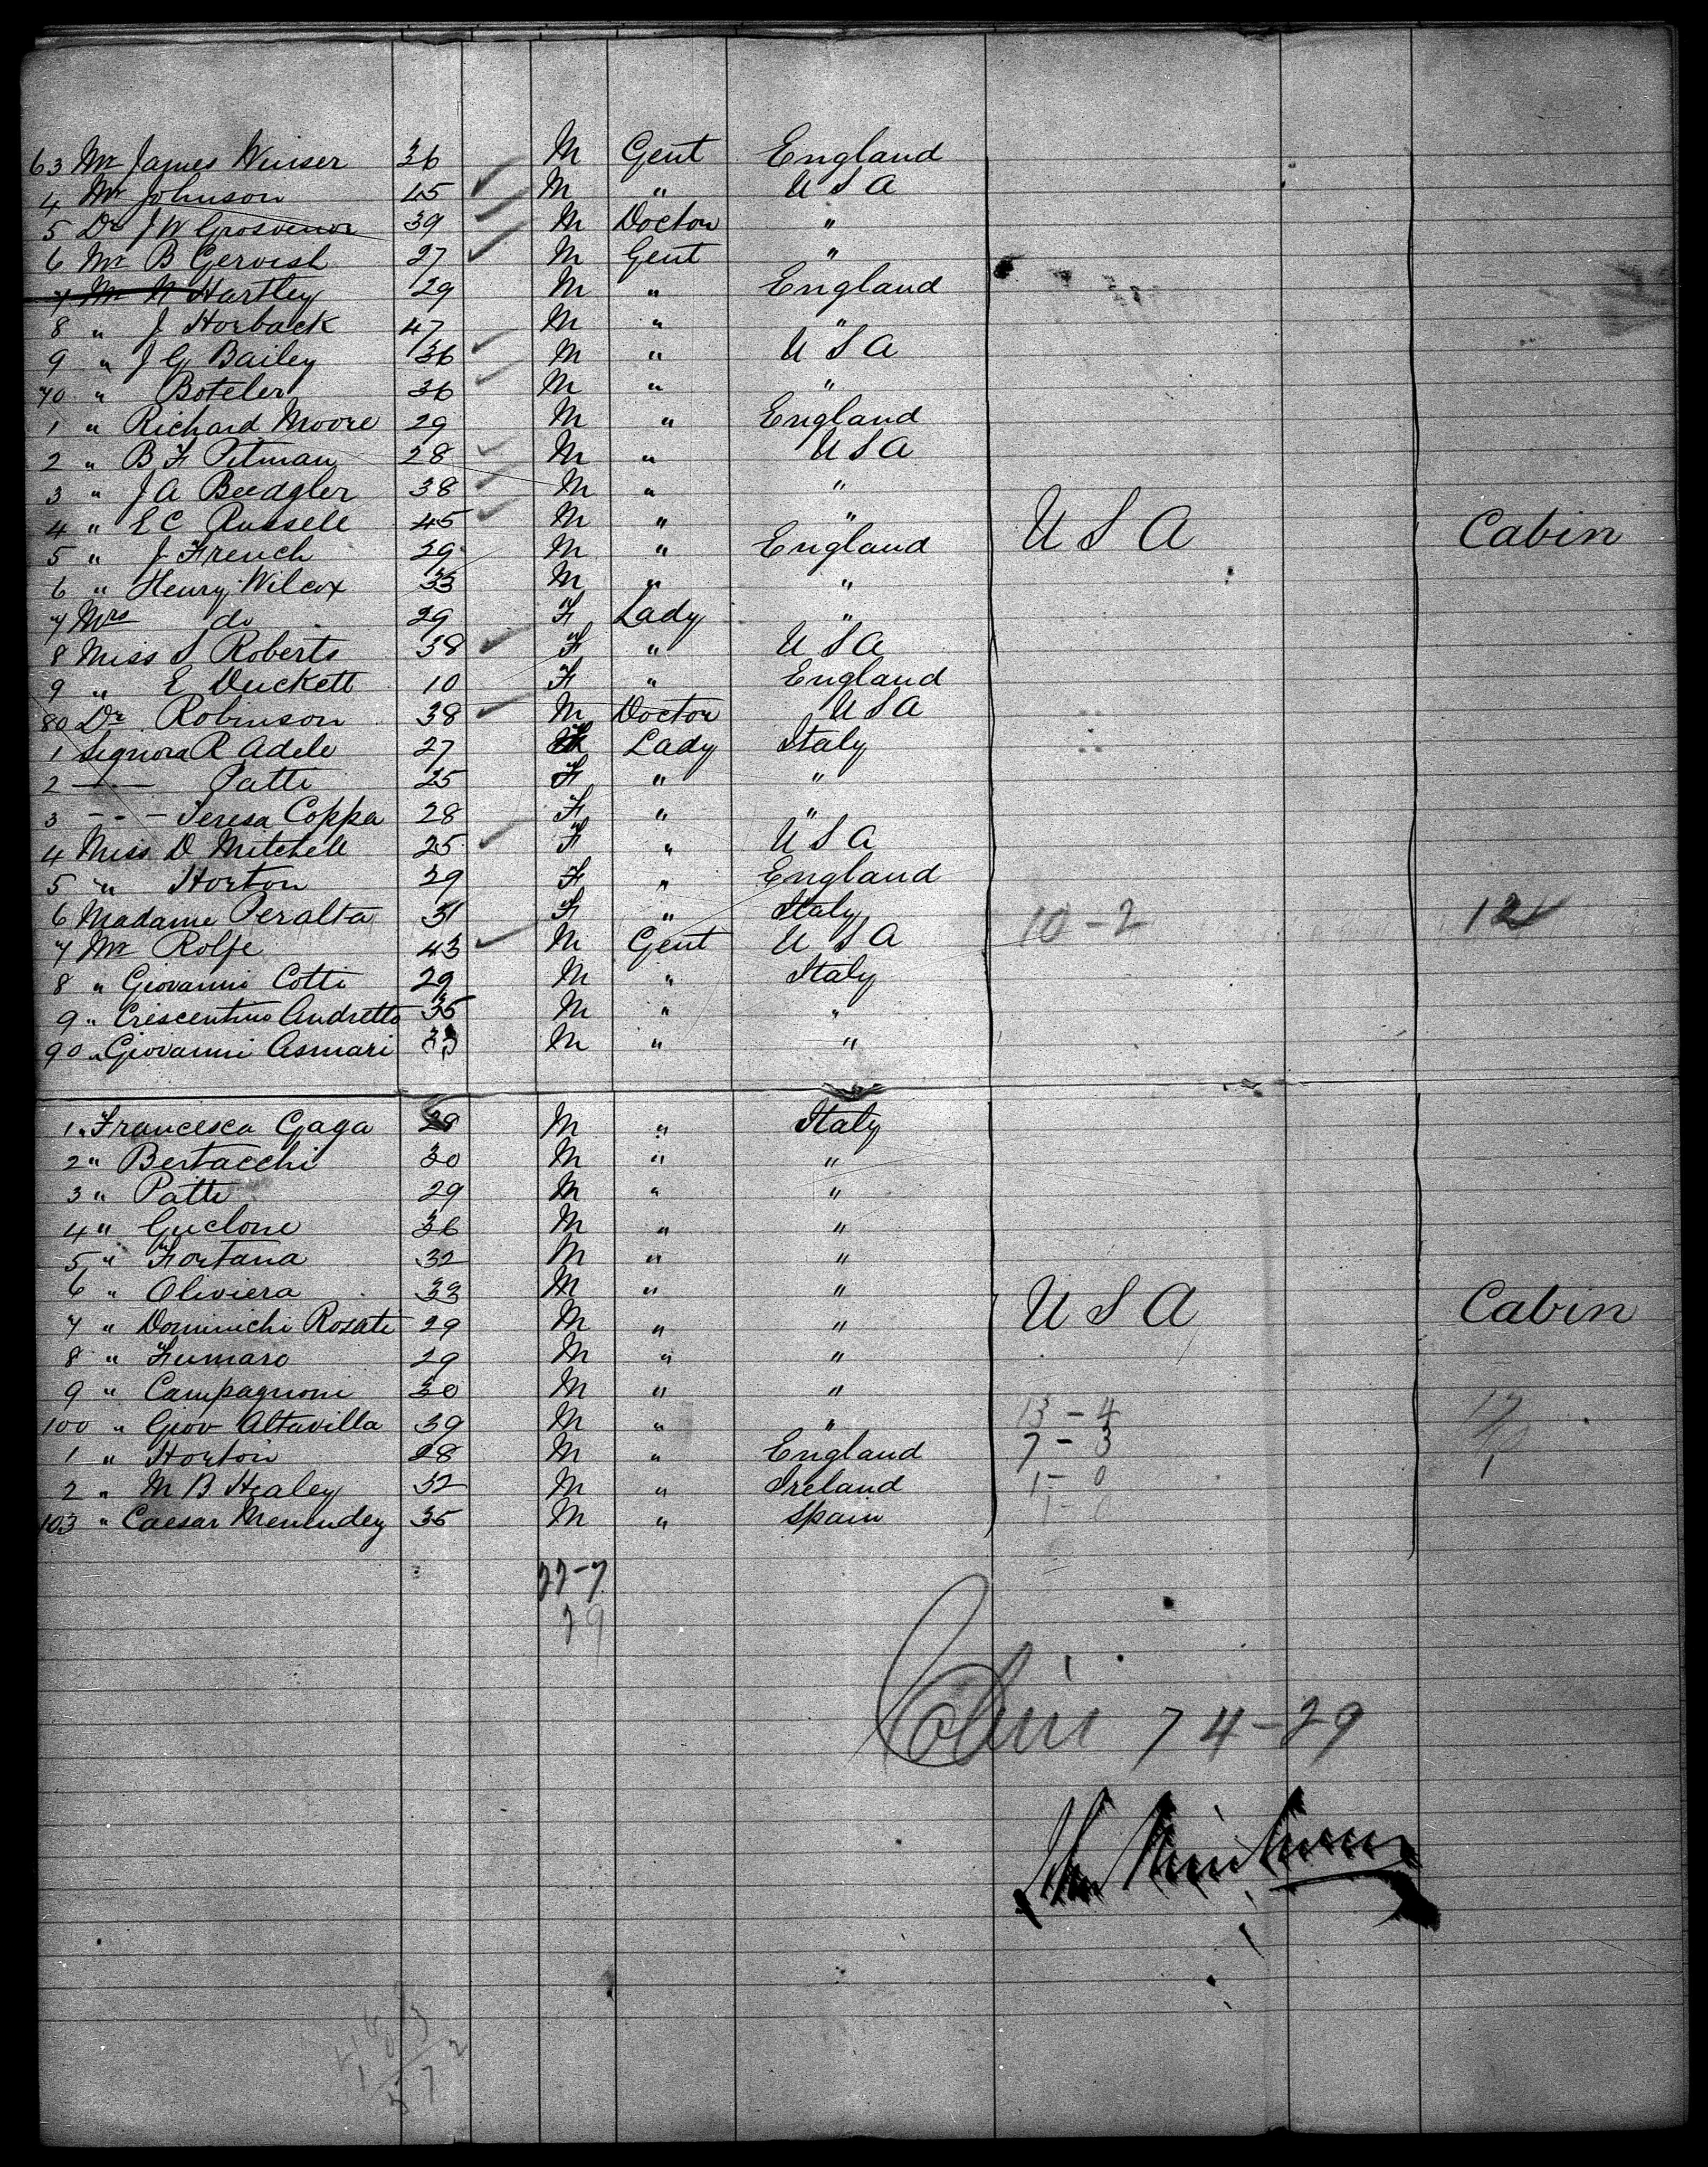 63 Mr James Winser 36 M Gent England
4 Mr Johnson 45 M " U S A
5 Dr J W Grosvenor 39 M Doctor "
6 Mr B Gervish 27 M Gent "
7 Mr N Hartley 29 M " England
8 " J Horback 47 M " "
9 " J G Bailey 36 M " U S A
70 " Boteler 36 M " "
1 " Richard Moore 29 M " England
2 " B F Pitman 28 M " U S A
3 " J A Beedgler 38 M " "
4 " E C Russell 45 M " "
5 " J French 29 M " England U S A Cabin
6 " Henry Wilcox 33 M " "
7 Mrs do 29 F Lady "
8 Miss S Roberts 38 F " U S A
9 " E Duckett 10 F " England
80 Dr Robinson 38 M Doctor U S A
1 Signora R Adele 27 F Lady Italy
2 - - Patti 25 F " "
3 - - - Teresa Coppa 28 F " "
4 Miss D Mitchell 25 F " U S A
5 " Horton 29 F " England
6 Madame Peralta 31 F " Italy 10-2 12
7 Mr Rolfe 43 M Gent U S A
8 " Giovanni Cotti 29 M " Italy
9 " Crescentino Andretto 35 M " "
90 " Giovanni Asmari 33 M " "
1 " Francesca Gaga 28 M " Italy
2 " Bertacchi 30 M " "
3 " Patti 29 M " "
4 " Guclone 36 M " "
5 " Fortana 32 M " "
6 " Oliviera 33 M " " U S A Cabin
7 " Dominichi Rosati 29 M " "
8 " Fumaro 29 M " "
9 " Campagnoni 30 M " "
100 " Giov Altavilla 39 M " " 13-4 17
1 " Horton 28 M " England 7-3
2 " M B Healey 32 M " Ireland 1-0 1
103 " Caesar Menendez 35 M " Spain 1-0
22-7
29
Cabin 74-29